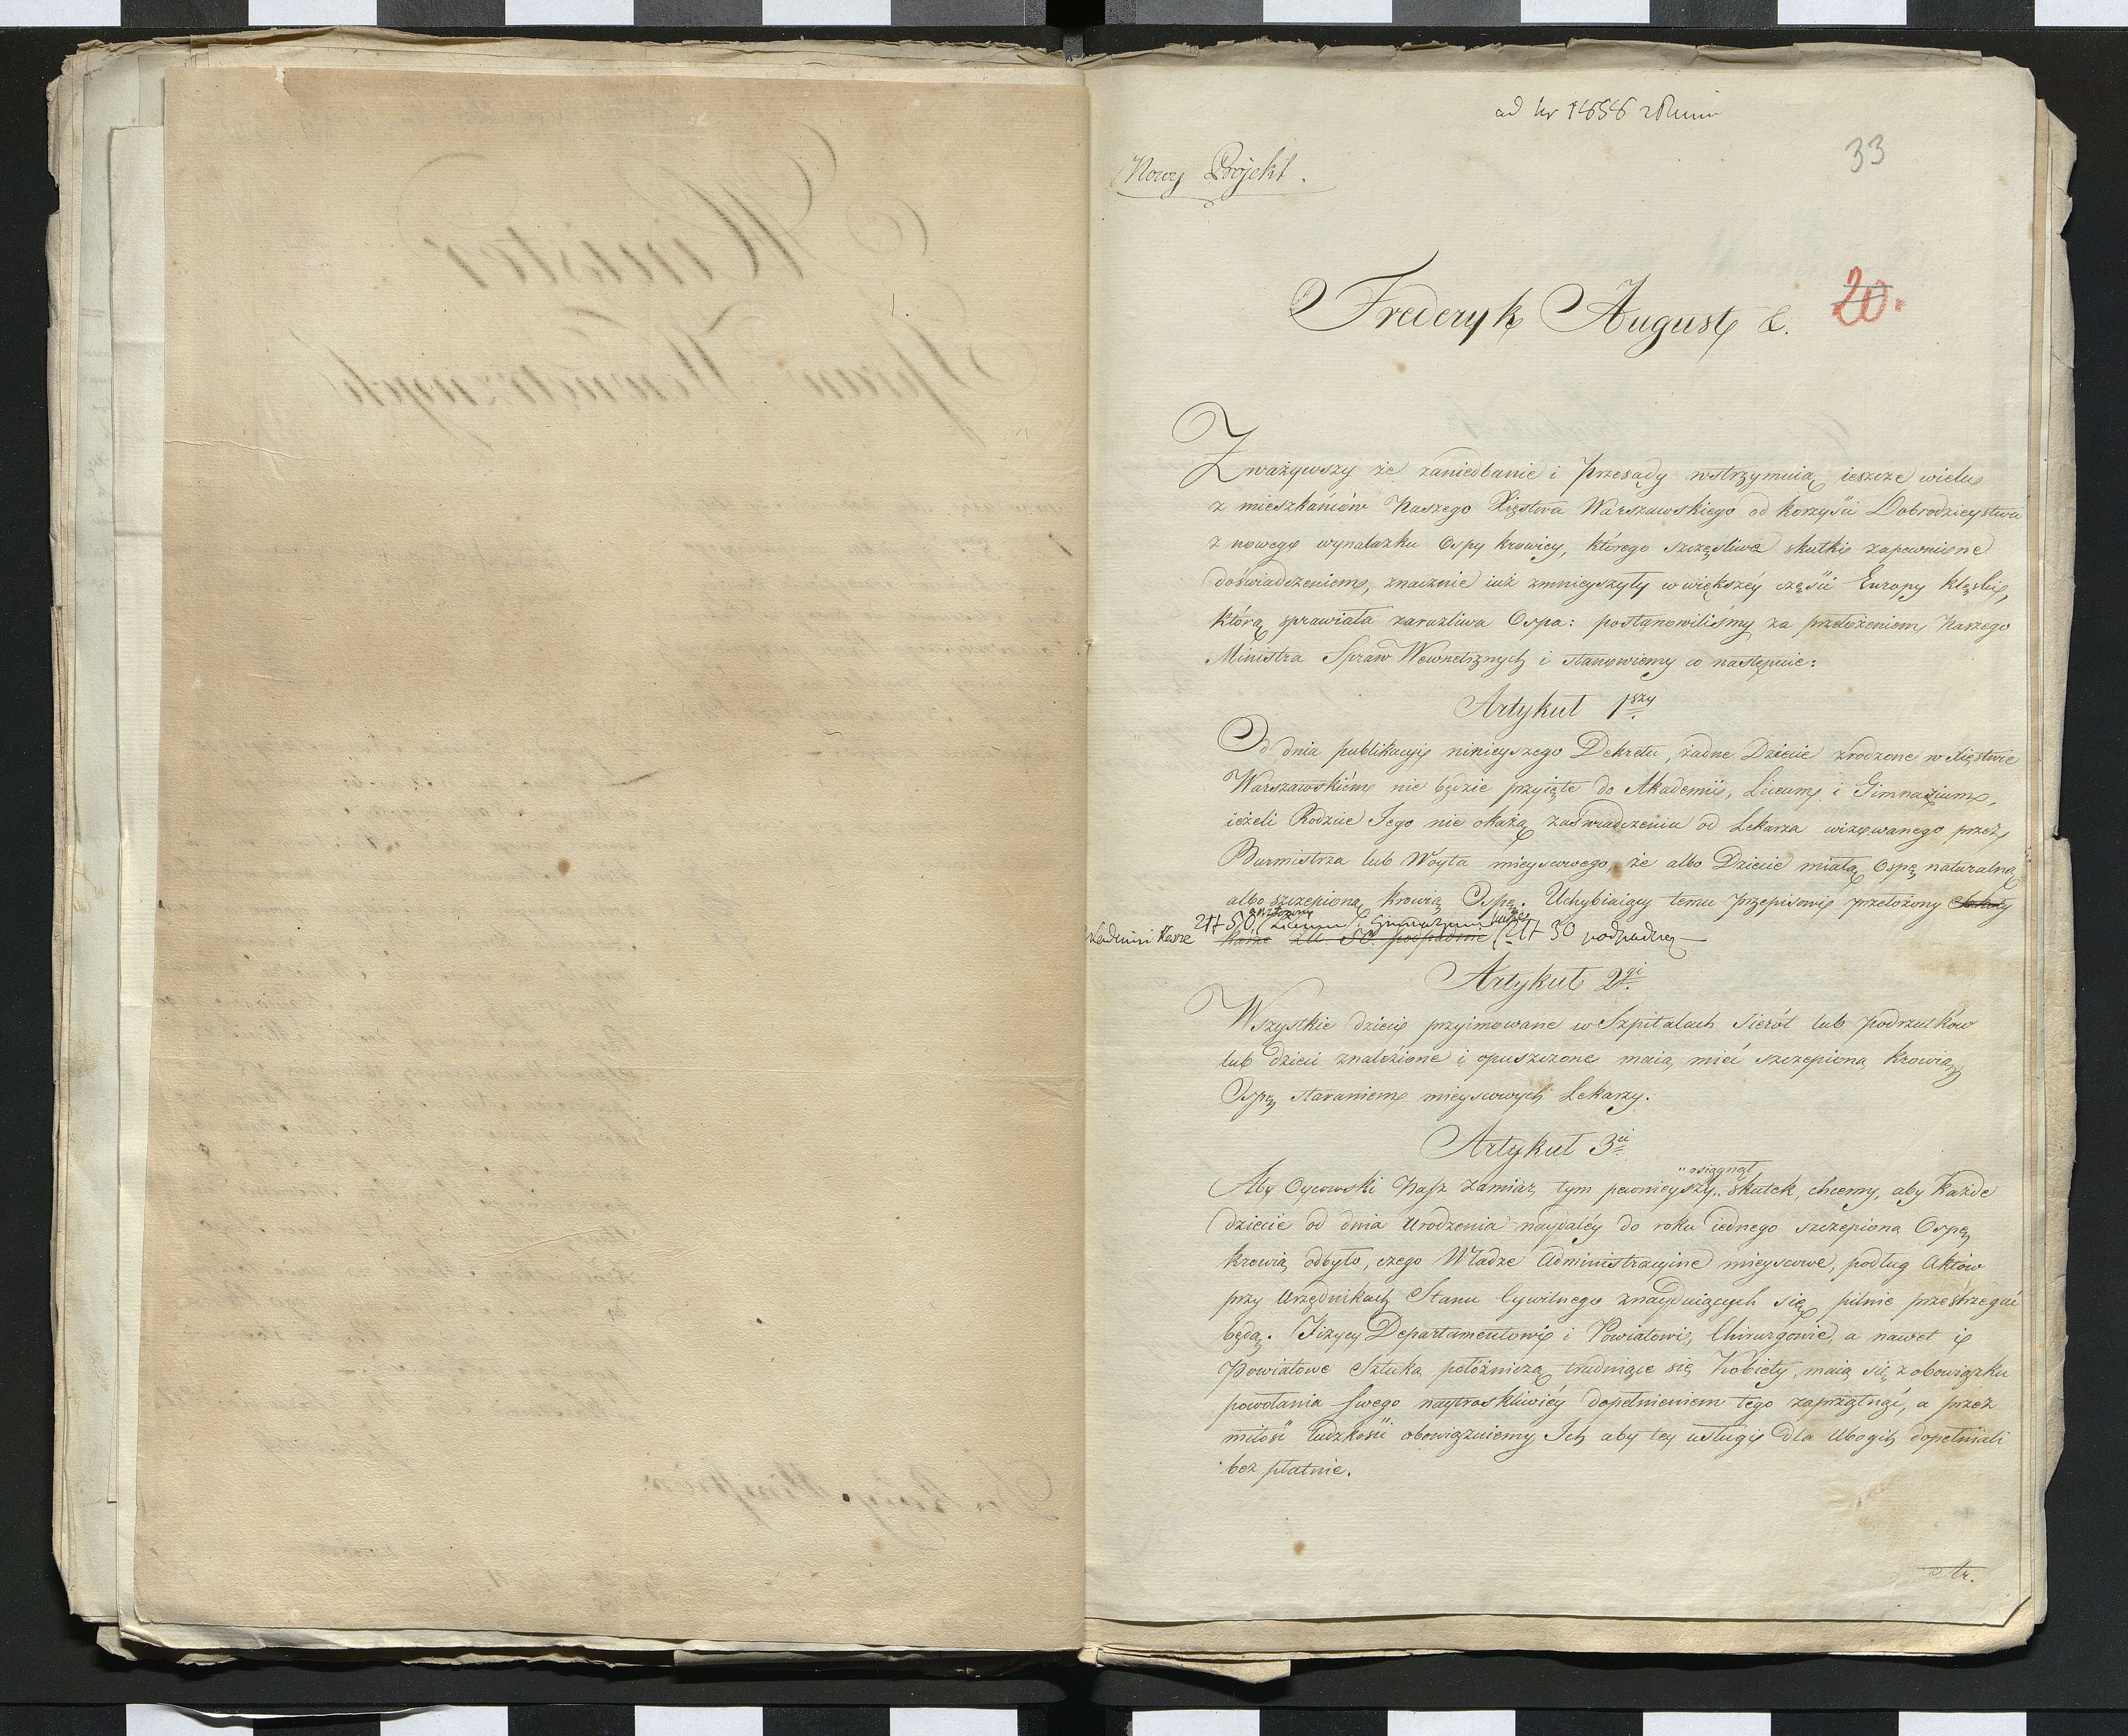 ad Nr 1656
33
Nowy Projekt.
20.
Fryderyk August &.
Zważywszy że zaniedbanie i przesądy wstrzymuią ieszcze wielu
z mieszkańców Naszego Xięstwa Warszawskiego od korzyści Dobrodzieystwa
z nowego wynalazku Ospy krowiey, którego szczęśliwe skutki zapewnione
doświadczeniem, znacznie iuż zmnieyszyły w większéy części Europy klęskę,
którą sprawiała zaraźliwa Ospa: postanowiliśmy za przełożeniem Naszego
Ministra Spraw Wewnetrznych i stanowiemy co następuie:
Artykuł 1szy
Od dnia publikacyi ninieyszego Dekretu, żadne Dziecie zrodzone w Xięstwie
Warszawskiém nie będzie przyięte do Akademii, Liceum i Gimnazium,
ieżeli Rodzice Jego nie okażą zaświadczenia od Lekarza wizowanego przez
Burmistrza lub Wóyta mieyscowego, że albo Dziecie miało Ospę naturalną
albo szczepioną krowią Ospę. Uchybiaiący temu przepisowi przełożony Szkoły
Akademii karze Złł 50, Liceum i Gimnazium karze Złł 30 podpadnie
karze Złł. 50. podpadnie
Artykuł 2gi
Wszystkie dzieci przyimowane w Szpitalach sierót lub podrzutków
lub dzieci znaleźione i opuszczone maią mieć szczepioną krowią
Ospę staraniem mieyscowych Lekarzy.
Artykuł 3ci
osiągnął
Aby Oycowski Nasz zamiar tym pewnieyszy skutek, chcemy, aby każde
dziecie od dnia urodzenia naydaléy do roku iednego szczepioną Ospę
krowią odbyło, czego Władze Administracyine mieyscowe, podług Aktów
przy Urzędnikach Stanu Cywilnego znayduiących się pilnie przestrzegać
będą. Fizycy Departamentowi i Powiatowi, Chirurgowie, a nawet i
Powiatowe Sztuką położniczą trudniące się Kobiety, maią się z obowiązku
powołania swego naytroskliwiéy dopełnieniem tego zaprzątnąć, a przez
miłość ludzkości obowiązuiemy Ich aby tey usługi dla Ubogich dopełniali
bez płatnie.